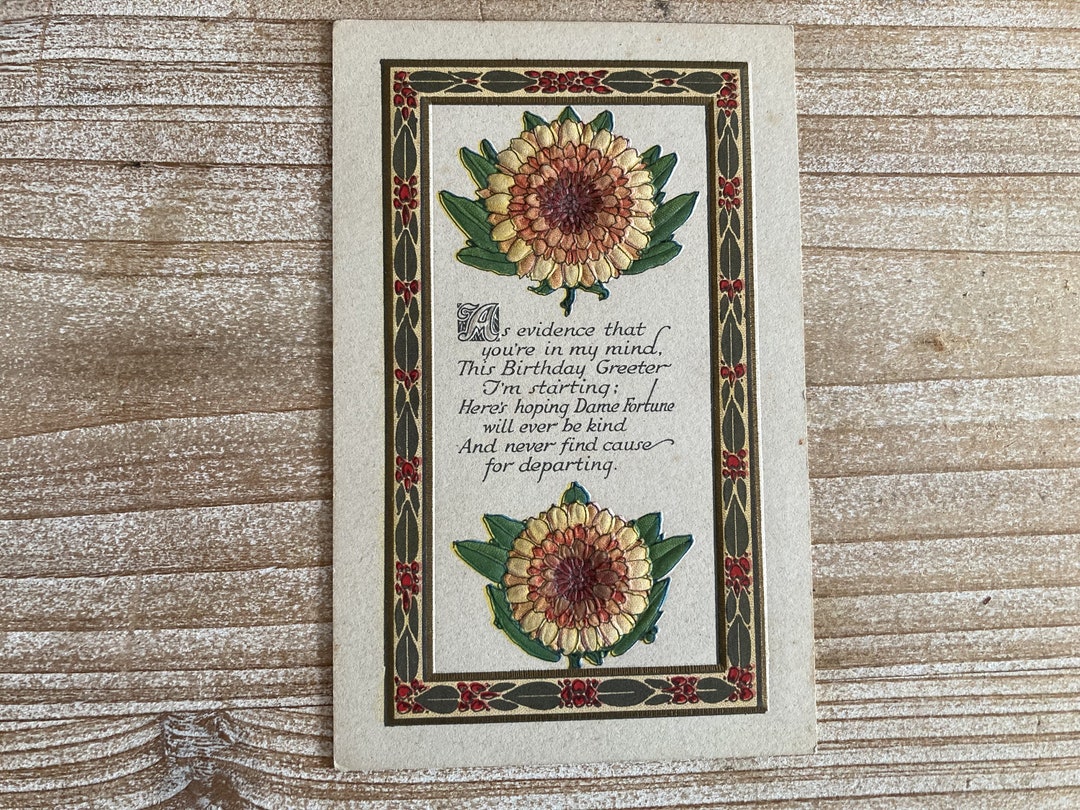 As evidence that
you're in my mind,
This Birthday Greeter
I'm starting;
Here's hoping Dame Fortune
will ever be kind
And never find cause
for departing.